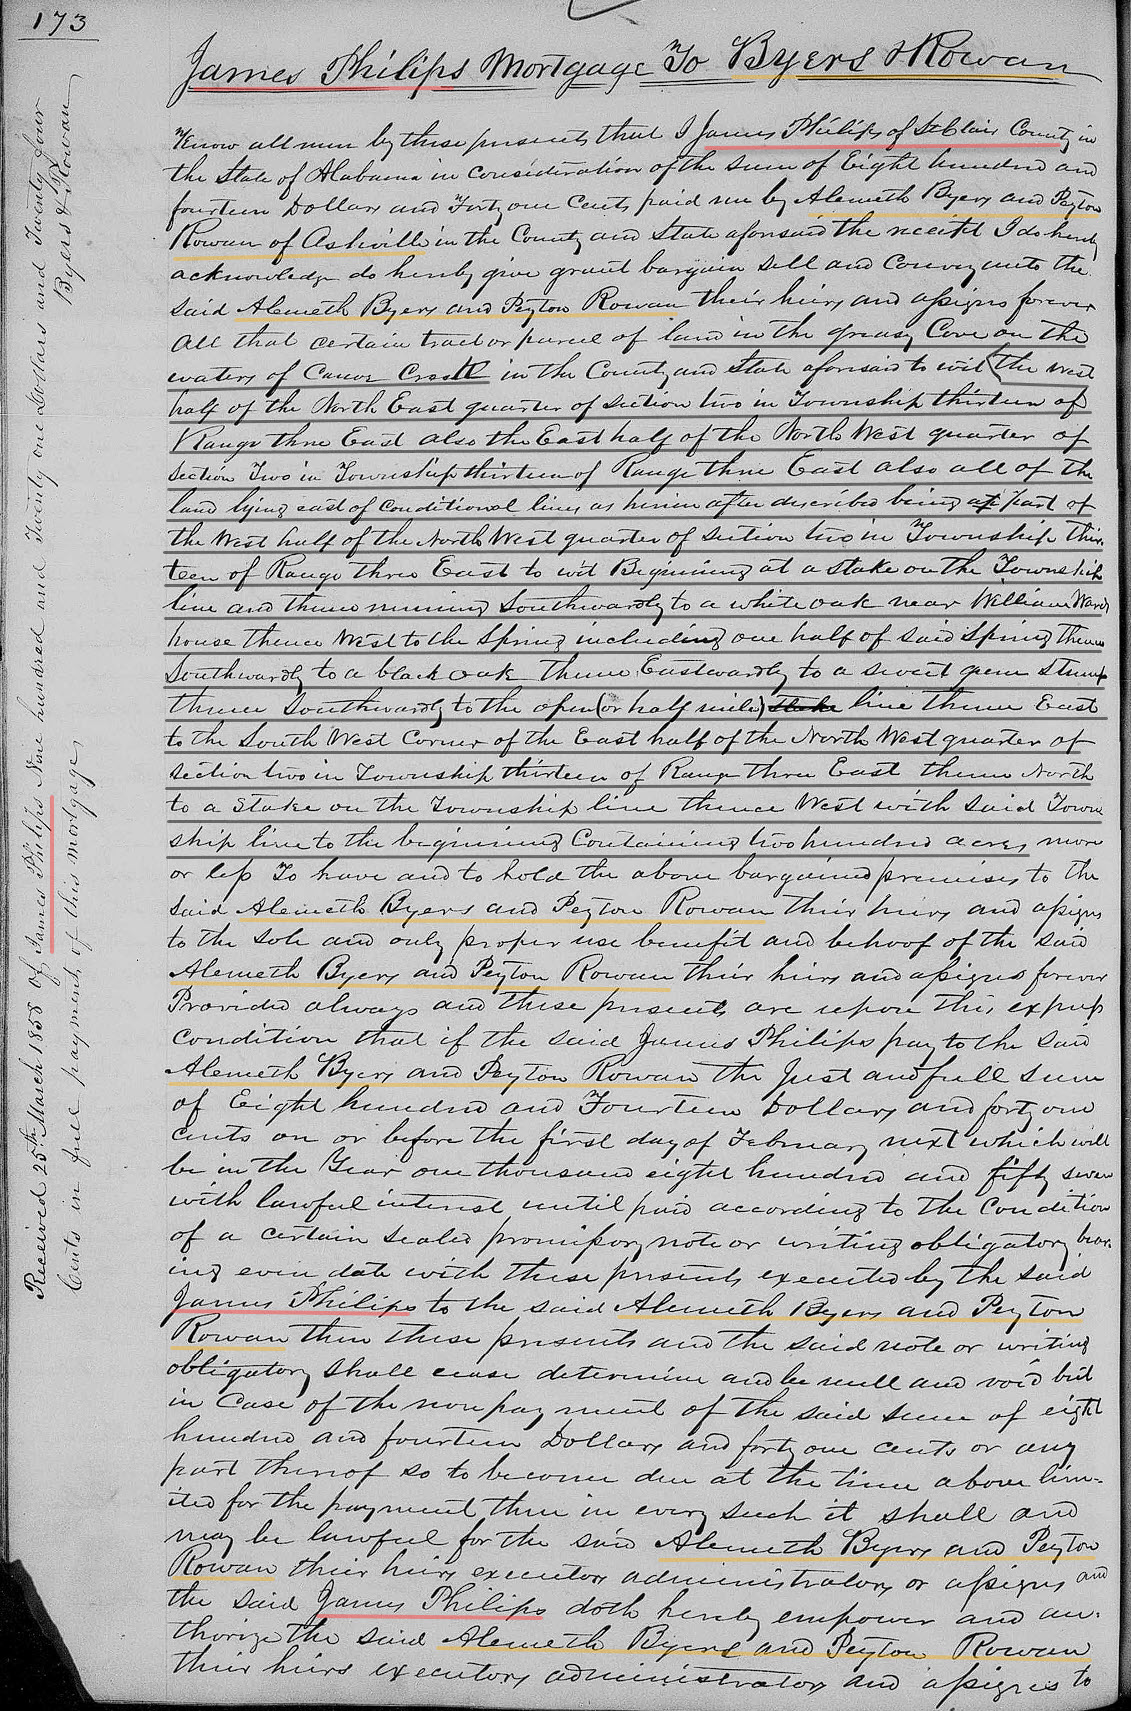 173
James Philips Mortgage To Byers & Rowan
Know all men by these presents that I James Philips of St Clair County in
the State of Alabama in consideration of the sum of Eight hundred and
fourteen Dollars and Forty one Cents paid me by Alemeth Byers and Peyton
Rowan of Ashville in the County and State aforesaid the receipt I do hereby
acknowledge do hereby give grant bargain sell and Convey unto the
said Alemeth Byers and Peyton Rowan their heirs and assigns forever
all that certain tract or parcel of land in the greasy Cove on the
waters of Canoe Creek in the County and State aforesaid to wit (the West
half of the North East quarter of section two in Township thirteen of
Range three East also the East half of the North West quarter of
section Two in Township thirteen of Range three East also all of the
land lying east of Conditional lines as herein after described being a part of
the West half of the North West quarter of section two in Township thir
teen of Range three East to wit Beginning at a stake on the Township
line and thence running Southwardly to a white oak near William Wards
house thence West to the Spring including one half of said Spring thence
Southwardly to a black oak thence Eastwardly to a sweet gum stump
thence Southwardly to the open (or half mile) line thence East
to the South West Corner of the East half of the North West quarter of
section two in Township thirteen of Range three East thence North
to a Stake on the Township line thence West with said Town
ship line to the beginning Containing two hundred acres more
or less To have and to hold the above bargained premises to the
said Alemeth Byers and Peyton Rowan their heirs and assigns
to the sole and only proper use benefit and behoof of the said
Alemeth Byers and Peyton Rowan their heirs and assigns forever
Provided always and these presents are upon this express
condition that if the said James Philips pay to the said
Alemeth Byers and Peyton Rowan the Just and full sum
of Eight hundred and Fourteen Dollars and forty one
cents on or before the first day of February next which will
be in the Year one thousand eight hundred and fifty seven
with lawful interest until paid according to the Condition
of a certain sealed promissory note or writing obligatory bear
ing even date with these presents executed by the said
James Philips to the said Alemeth Byers and Peyton
Rowan then these presents and the said note or writing
obligatory shall cease determine and be null and void but
in Case of the non payment of the said sum of eight
hundred and fourteen Dollars and forty one cents or any
part thereof so to become due at the time above lim-
ited for the payment then in every such it shall and
may be lawful for the said Alemeth Byers and Peyton
Rowan their heirs executors administrators or assigns and
the said James Philips doth hereby empower and au-
thorize the said Alemeth Byers and Peyton Rowan
their heirs executors administrators and assigns to
Received 25th March 1858 of James Philips Nine hundred and Twenty one Dollars and Twenty four
Cents in full payment of this mortgage
Byers & Rowan